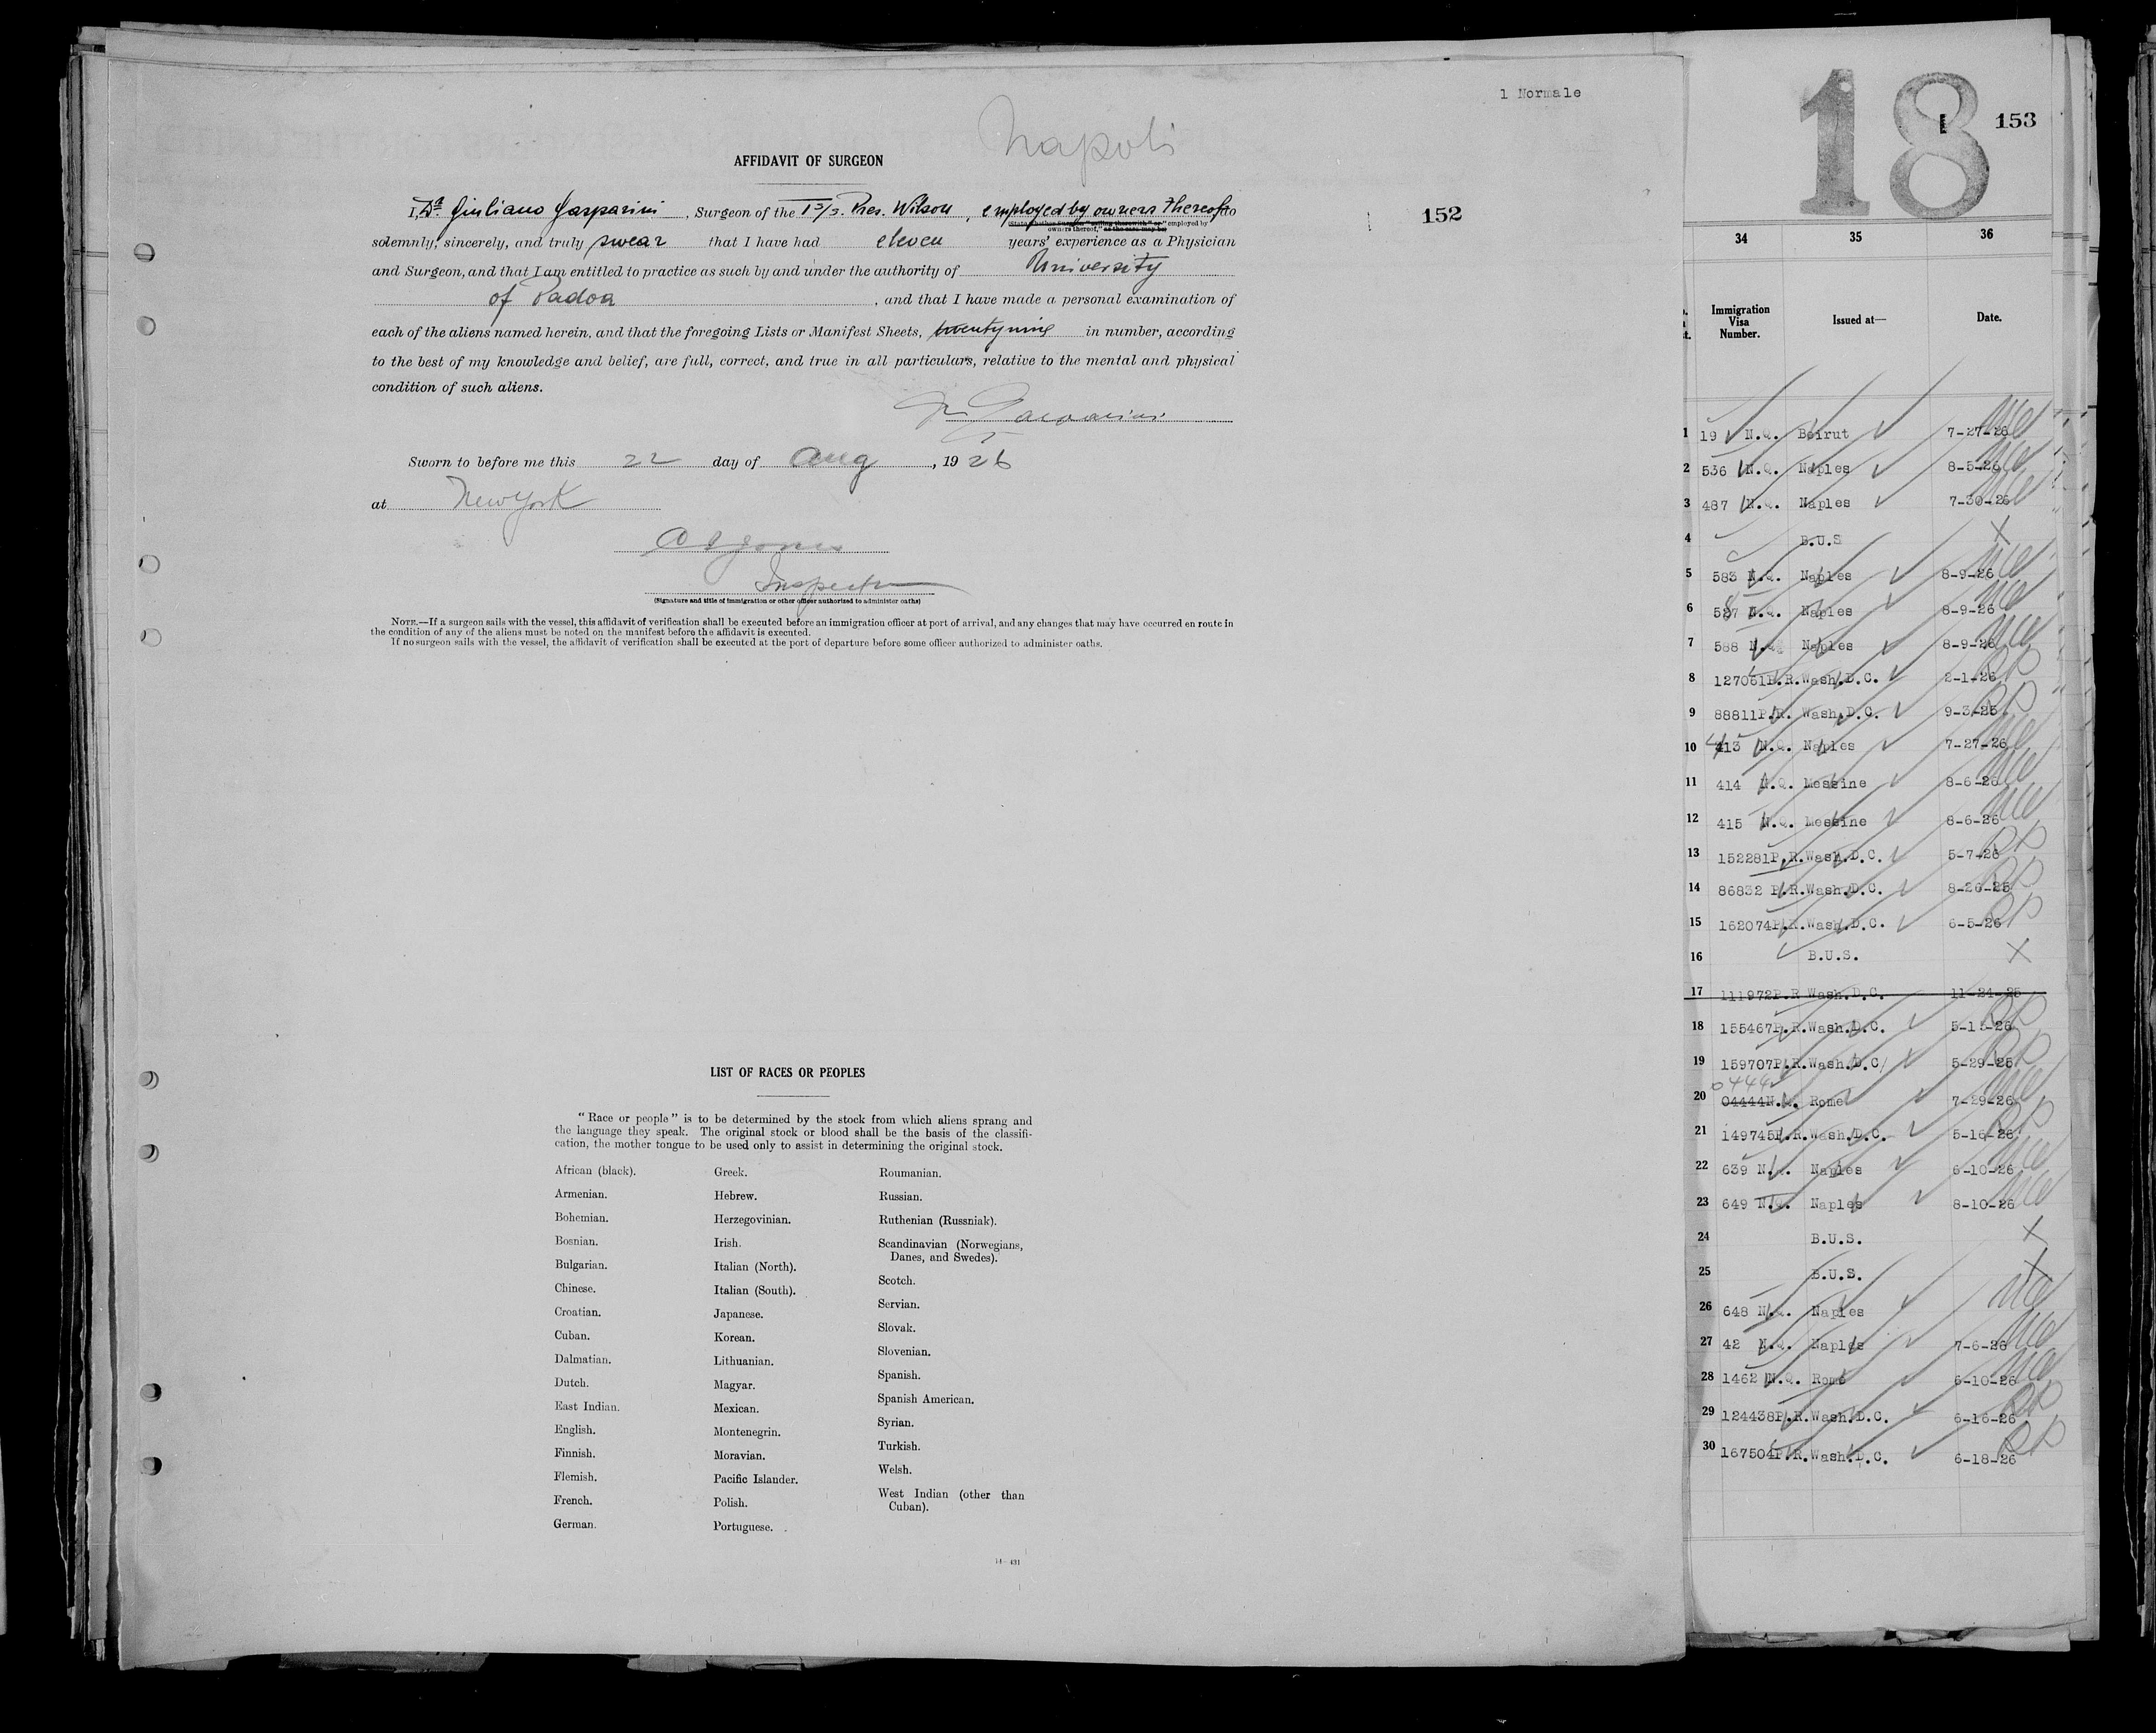 1 Normale
Napoli
AFFIDAVIT OF SURGEON
I, Dr. Giuliano Gasparini, Surgeon of the T S/S. Pres. Wilson, employed by owners thereof do
owners thereof," as the case may be) employed by
152
solemnly, sincerely, and truly swear that I have had eleven years' experience as a Physician
and Surgeon, and that I am entitled to practice as such by and under the authority of University
of Padoa, and that I have made a personal examination of
each of the aliens named herein, and that the foregoing Lists or Manifest Sheets, twentynine in number, according
to the best of my knowledge and belief, are full, correct, and true in all particulars, relative to the mental and physical
condition of such aliens.
Gasparini
Sworn to before me this 22 day of Aug, 1926
at New York
Inspector
(Signature and title of immigration or other officer authorized to administer oaths)
NOTE.—If a surgeon sails with the vessel, this affidavit of verification shall be executed before an immigration officer at port of arrival, and any changes that may have occurred en route in
the condition of any of the aliens must be noted on the manifest before the affidavit is executed.
If no surgeon sails with the vessel, the affidavit of verification shall be executed at the port of departure before some officer authorized to administer oaths.
LIST OF RACES OR PEOPLES
"Race or people" is to be determined by the stock from which aliens sprang and
the language they speak. The original stock or blood shall be the basis of the classifi-
cation, the mother tongue to be used only to assist in determining the original stock.
African (black).
Armenian.
Bohemian.
Bosnian.
Bulgarian.
Chinese.
Croatian.
Cuban.
Dalmatian.
Dutch.
East Indian.
English.
Finnish.
Flemish.
French.
German.
Greek.
Hebrew.
Herzegovinian.
Irish.
Italian (North).
Italian (South).
Japanese.
Korean.
Lithuanian.
Magyar.
Mexican.
Montenegrin.
Moravian.
Pacific Islander.
Polish.
Portuguese.
Roumanian.
Russian.
Ruthenian (Russniak).
Scandinavian (Norwegians,
Danes, and Swedes).
Scotch.
Servian.
Slovak.
Slovenian.
Spanish.
Spanish American.
Syrian.
Turkish.
Welsh.
West Indian (other than
Cuban).
14—431
18
153
34 35 36
Immigration Visa Number. Issued at— Date.
1 19 N.Q. Beirut 7-27-26
2 536 N.Q. Naples 8-5-26
3 487 N.Q. Naples 7-30-26
4 B.U.S X
5 583 N.Q. Naples 8-9-26
6 587 N.Q. Naples 8-9-26
7 588 N.Q. Naples 8-9-26
8 127061P.R. Wash.D.C. 2-1-26
9 88811P.R. Wash.D.C. 9-3-25
10 413 N.Q. Naples 7-27-26
11 414 N.Q. Messine 8-6-26
12 415 N.Q. Messine 8-6-26
13 152281P.R. Wash.D.C. 5-7-26
14 86832 P.R. Wash.D.C. 8-26-25
15 162074P.R. Wash.D.C. 6-5-26
16 B.U.S. X
17 111972P.R Wash.D.C. 11-24-25
18 155467P.R. Wash.D.C. 5-15-26
19 159707P.R. Wash.D.C/ 5-29-26
0444
20 04444N.Q. Rome 7-29-26
21 149745P.R. Wash.D.C. 5-16-26
22 639 N.Q. Naples 6-10-26
23 649 N.Q. Naples 8-10-26
24 B.U.S. X
25 B.U.S. X
26 648 N.Q. Naples
27 42 N.Q. Naples 7-6-26
28 1462 N.Q. Rome 6-10-26
29 124438P.R. Wash.D.C. 6-16-26
30 167504P.R. Wash.D.C. 6-18-26